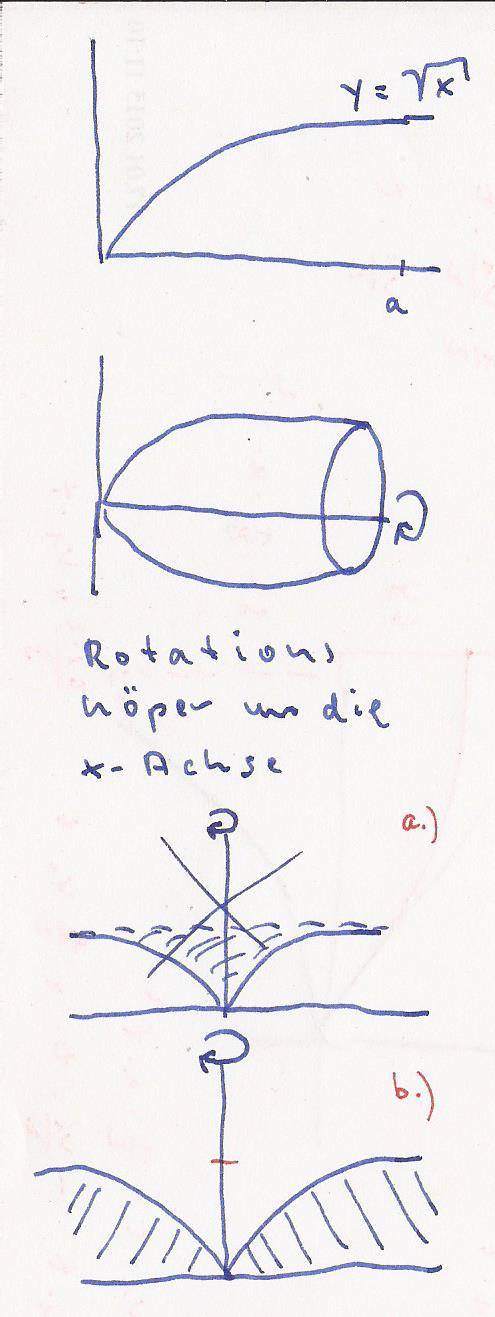 y = √x
a
Rotations
köper um die
x-Achse
a.)
b.)